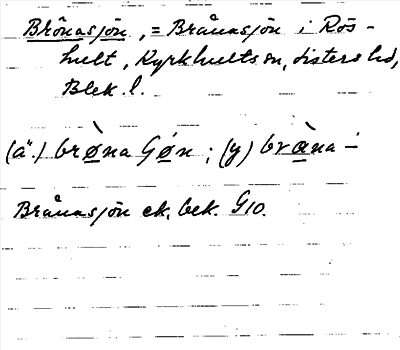 Brönasjön, = Brånasjön i Rös-
hult, Kyrkhults sn, Listers hd,
Blek. l.
(ä.) brøna Gøn; (y) bråna -
Brånasjön ek. bek. G10.